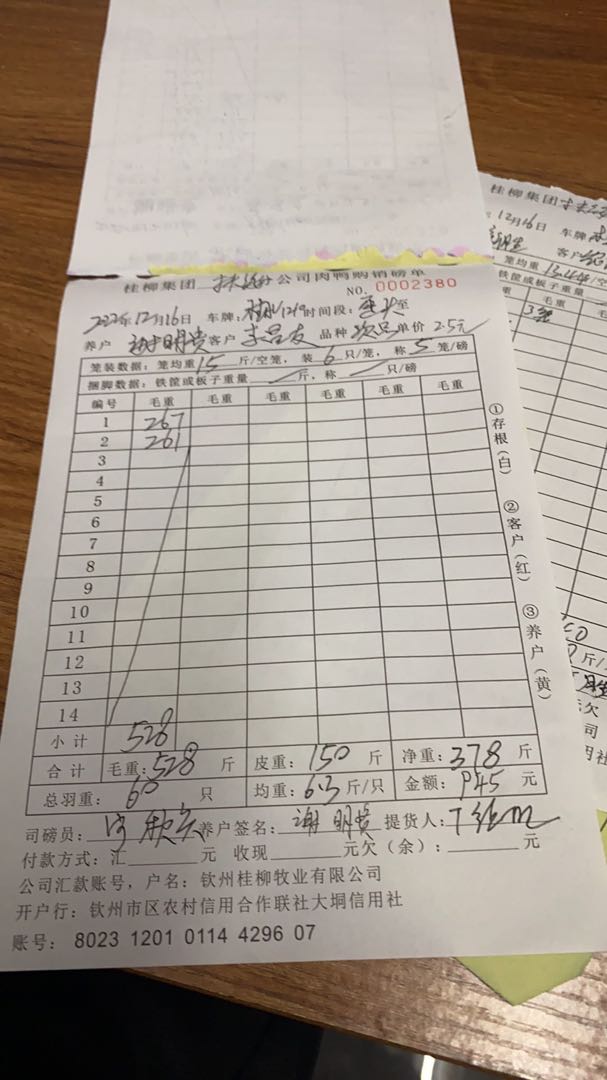 桂柳集团 分公司肉鸭购销磅单
NO. 0002380
2022年12月16日 车牌: 时间段: 至
养户 谢明贵 客户 李昌友 品种 次品 单价 2.5元
笼装数据: 笼均重 15 斤/空笼, 装 6 只/笼, 称 5 笼/磅
捆脚数据: 铁筐或板子重量 斤, 称 只/磅
编号 毛重 毛重 毛重 毛重 毛重 毛重
1 267
2 261
3
4
5
6
7
8
9
10
11
12
13
14
小计 528
合计 毛重: 528 斤 皮重: 150 斤 净重: 378 斤
总羽重: 60 只 均重: 6.3 斤/只 金额: 945 元
司磅员: 养户签名: 谢明贵 提货人:
付款方式: 汇 元 收现 元欠(余): 元
公司汇款账号, 户名: 钦州桂柳牧业有限公司
开户行: 钦州市区农村信用合作联社大垌信用社
账号: 8023 1201 0114 4296 07
①存根(白) ②客户(红) ③养户(黄)
桂柳集团
12月16日 车牌
客户
笼均重 13.44 /空
铁筐或板子重量
毛重 毛重
斤/
欠
司
用社